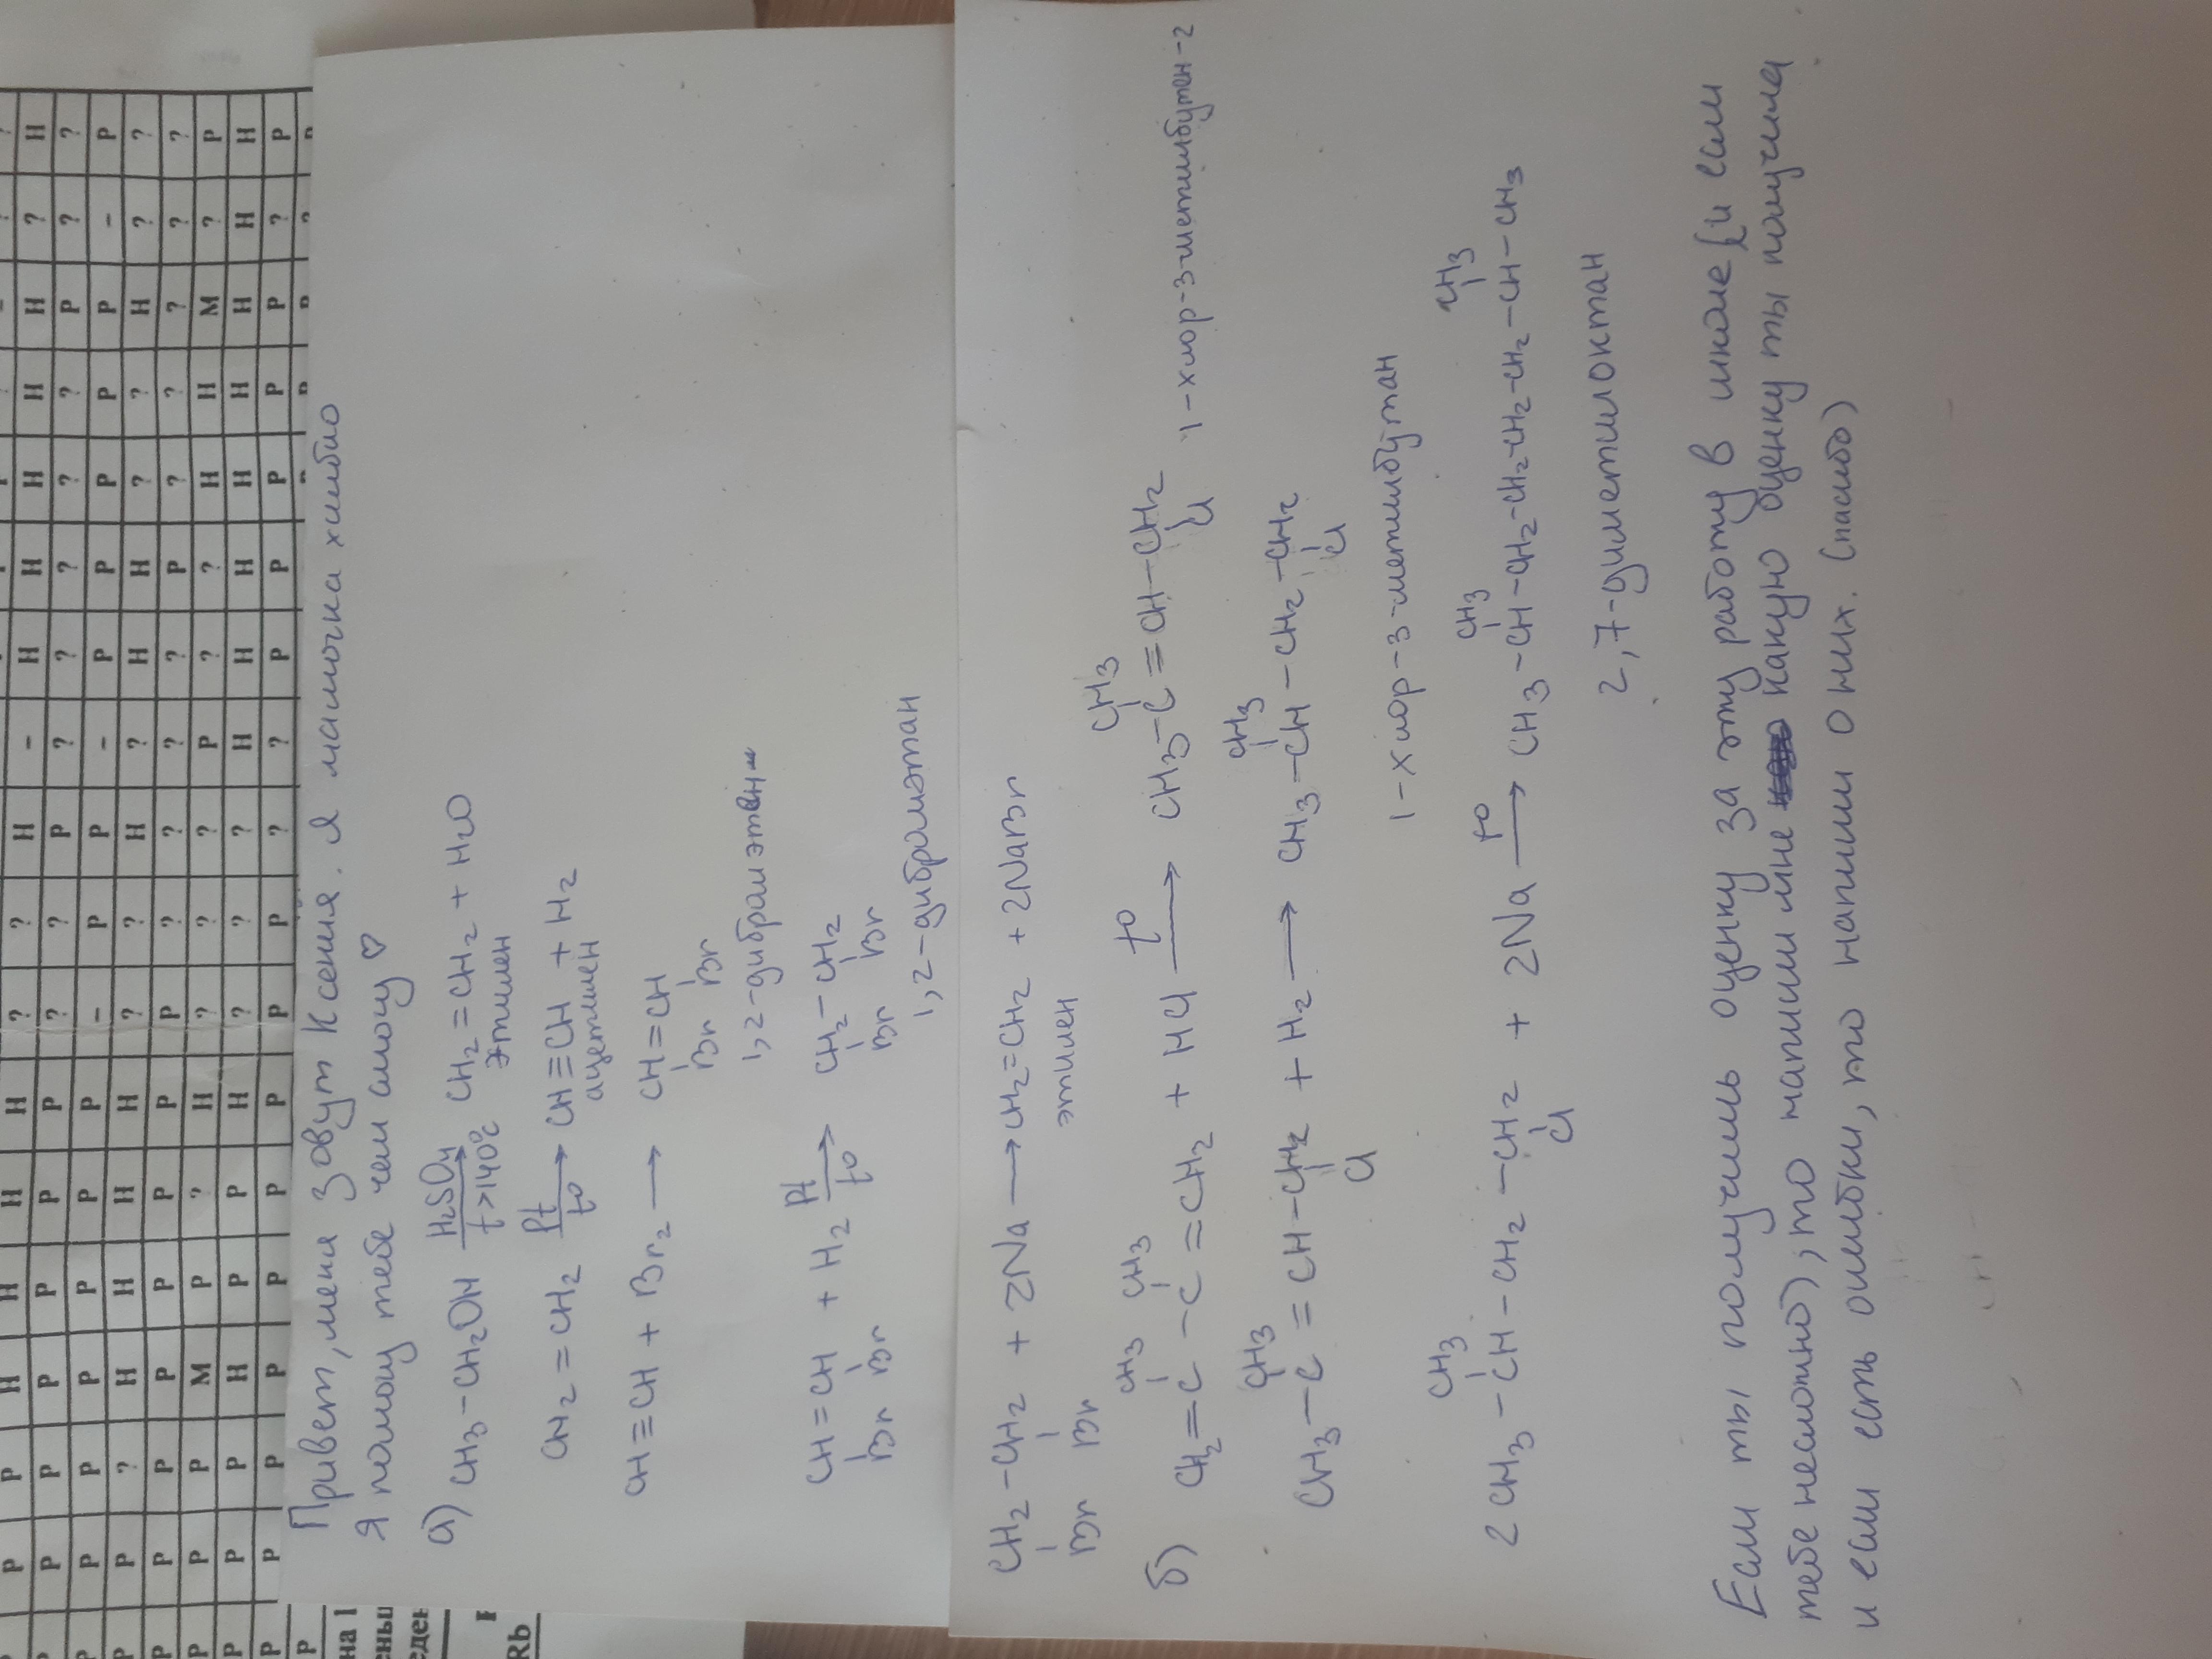 Привет, меня зовут Ксения. Я мамочка химбио
Я помогу тебе чем смогу ♡
а) CH3-CH2OH H2SO4 t>140°C → CH2=CH2 + H2O
этилен
CH2=CH2 Pt t° → CH≡CH + H2
ацетилен
CH≡CH + Br2 → CH=CH
Br Br
1,2-дибромэтен
CH=CH + H2 Pt t° → CH2-CH2
Br Br Br Br
1,2-дибромэтан
CH2-CH2 + 2Na → CH2=CH2 + 2NaBr
Br Br этилен
CH3 CH3 CH3
б) CH2=C-C=CH2 + HCl t° → CH3-C=CH-CH2 1-хлор-3-метилбутен-2
Cl
CH3 CH3
CH3-C=CH-CH2 + H2 → CH3-CH-CH2-CH2
Cl Cl
1-хлор-3-метилбутан
CH3 CH3 CH3
2CH3-CH-CH2-CH2 + 2Na t° → CH3-CH-CH2-CH2-CH2-CH2-CH-CH3
Cl
2,7-диметилоктан
Если ты получишь оценку за эту работу в школе (и если
тебе несложно), то напиши мне какую оценку ты получила
и если есть ошибки, то напиши о них. (спасибо)
Н ? Н Н Н Н Н - Н ? ? Н Н Н Н Р Р
? ? Р ? ? ? ? ? Р ? ? Р Р Р Р Р Р
Р - Р Р Р Р Р - Р Р - Р Р Р Р Р Р
? ? Н ? ? Н Н ? Н ? ? Н Н Н Н ? Р
? ? ? ? ? Р ? ? ? ? Р Р Р Р Р Р Р
Р ? М Н Н ? ? Р ? ? ? Н ? Р М Р Р
Н Н Н Н Н Н Н Н ? ? ? Н Р Р Н Р Р
Р ? Р Р Р Р Р ? ? Р Р Р Р Р Р Р Р
на 1
Rb